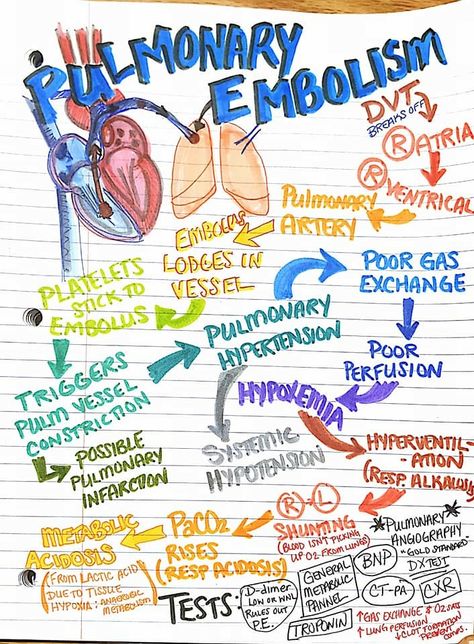 PULMONARY
EMBOLISM
DVT
BREAKS OFF
R ATRIA
R VENTRICAL
PULMONARY
ARTERY
EMBOLUS
LODGES IN
VESSEL
PLATELETS
STICK TO
EMBOLUS
TRIGGERS
PULM VESSEL
CONSTRICTION
POSSIBLE
PULMONARY
INFARCTION
PULMONARY
HYPERTENSION
SYSTEMIC
HYPOTENSION
POOR GAS
EXCHANGE
POOR
PERFUSION
HYPOXEMIA
HYPERVENTIL-
ATION
(RESP. ALKALOSIS)
R-L
SHUNTING
(BLOOD ISN'T PICKING
UP O2 FROM LUNGS)
PaCO2
RISES
(RESP ACIDOSIS)
METABOLIC
ACIDOSIS
(FROM LACTIC ACID
DUE TO TISSUE
HYPOXIA: ANAEROBIC
METABOLISM)
TESTS:
D-dimer
LOW OR WNL
RULES OUT
P.E.
GENERAL
METABOLIC
PANNEL
TROPONIN
BNP
CT-PA
CXR
*PULMONARY*
ANGIOGRAPHY
"GOLD STANDARD"
DX TEST
↑ GAS EXCHANGE & O2 SATS
↑ LUNG PERFUSION
↓ CLOT FORMATION